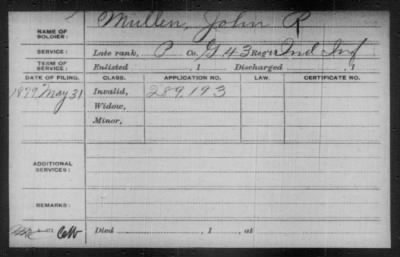 NAME OF SOLDIER: Mullen, John R
SERVICE: Late rank, P Co. G 43 Reg't Ind Inf
TERM OF SERVICE: Enlisted , 1 Discharged , 1
DATE OF FILING. CLASS. APPLICATION NO. LAW. CERTIFICATE NO.
1879 May 31 Invalid, 289,193
Widow,
Minor,
ADDITIONAL SERVICES:
REMARKS:
Died , 1 , at